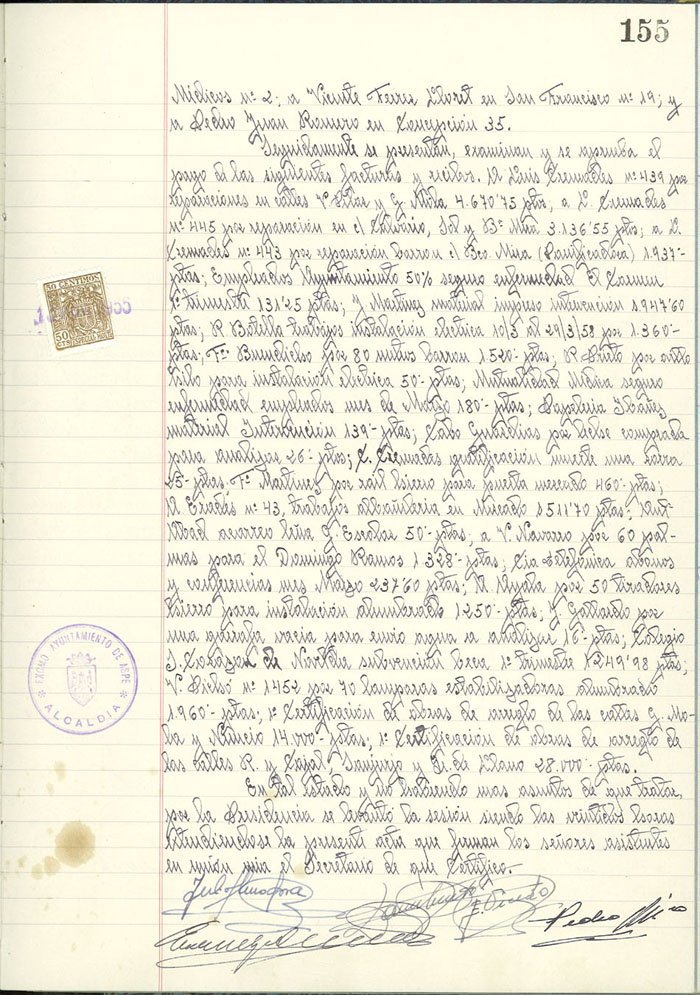 155
Médicos nº 2; a Vicente Ferrer Lloret en San Francisco nº 19; y
a Pedro Juan Romero en Concepción 35.
Seguidamente se presentan, examinan y se aprueba el
pago de las siguientes facturas y recibos. A Luis Cremades nº 439 por
reparaciones en calles V. Pilar y G. Mola 4.670'75 ptas; a L. Cremades
nº 445 por reparación en el Calvario, Sol y Bº Mira 3.136'55 ptas; a L.
Cremades nº 443 por reparación barron el Bco Mira (Panificadora) 1.937'-
ptas; Empleados Ayuntamiento 50% seguro enfermedad
1º trimestre 131'25 ptas; J. Martinez material impreso intervencion 1947'60
ptas; R. Botella trabajos instalación electrica 10/3 al 29/3/58 por 1.360'-
ptas; Fº por 80 metros barron 1520'- ptas; R. Prieto por
para instalación electrica 50'- ptas; Mutualidad Médica seguro
enfermedad empleados mes de Marzo 180'- ptas; Papeleria Ibañez
material Intervención 139'- ptas; Cabo Guardias por leche comprada
para analizar 26'- ptas; L. Cremades gratificación muerte una zorra
25'- ptas; Fº Martinez por rail hierro para puerta mercado 460'- ptas;
A. nº 43, trabajos albañileria en Mercado 1511'70 ptas;
acarreo leña G. Escolar 50'- ptas; a V. Navarro por 60 pal-
mas para el Domingo Ramos 1328'- ptas; Cia Telefónica abonos
y conferencias mes Marzo 237'60 ptas; A. Ayala por 50 tiradores
hierro para instalación alumbrado 1250'- ptas; J. Gallardo por
una garrafa vacia para envio agua a analizar 16'- ptas; Colegio
S. Corazon de Novelda subvención beca 1º trimestre 1249'98 ptas;
V. nº 1452 por 70 lamparas estabilizadoras alumbrado
1.960'- ptas; 1ª Certificación de obras de arreglo de las calles G. Mo-
la y Nuncio 14.000'- ptas; 1ª Certificación de obras de arreglo de
las calles R. y Cajal, Sanjurjo y Q. de Llano 28.000'- ptas.
En tal estado y no habiendo mas asuntos de que tratar,
por la Presidencia se levantó la sesión siendo las veintidos horas
extendiendose la presente acta que firman los señores asistentes
en unión mia el Secretario de que Certifico.-
Pedro
50 CENTIMOS
50
EXCMO. AYUNTAMIENTO DE ASPE
ALCALDIA